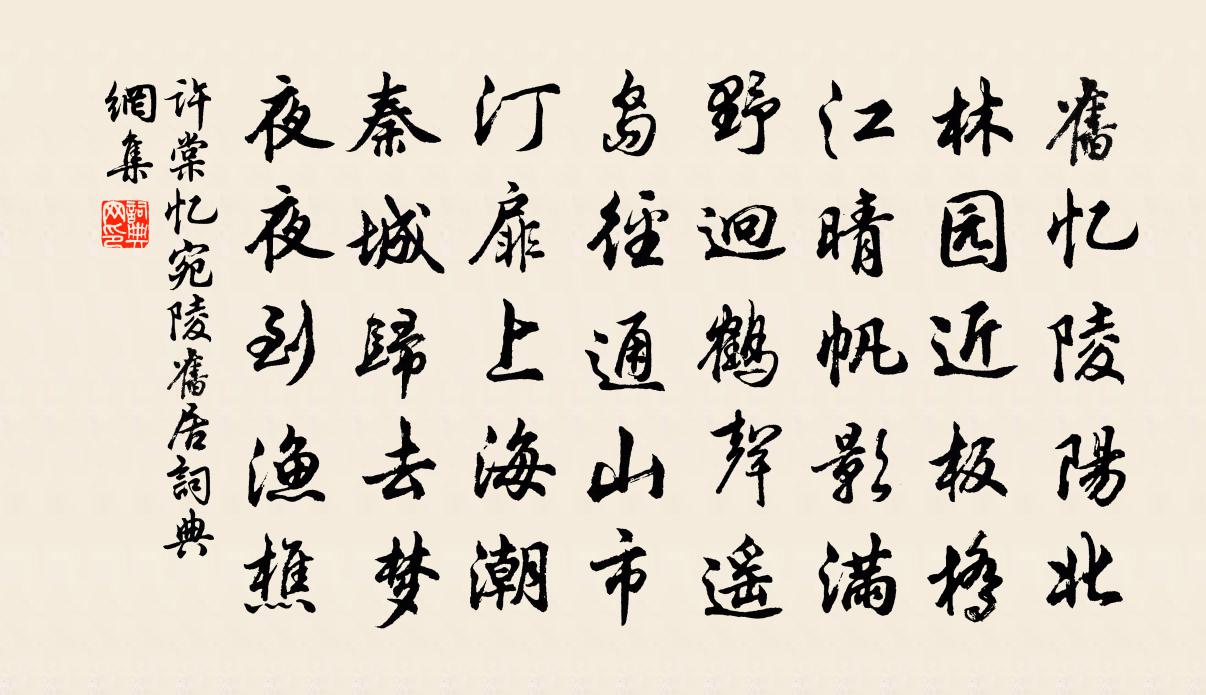 舊忆陵陽北
林园近板橋
江晴帆影满
野迥鹤聲遥
岛徑通山市
汀扉上海潮
秦城歸去梦
夜夜到渔樵
许棠忆宛陵舊居詞典
網集
詞典网印